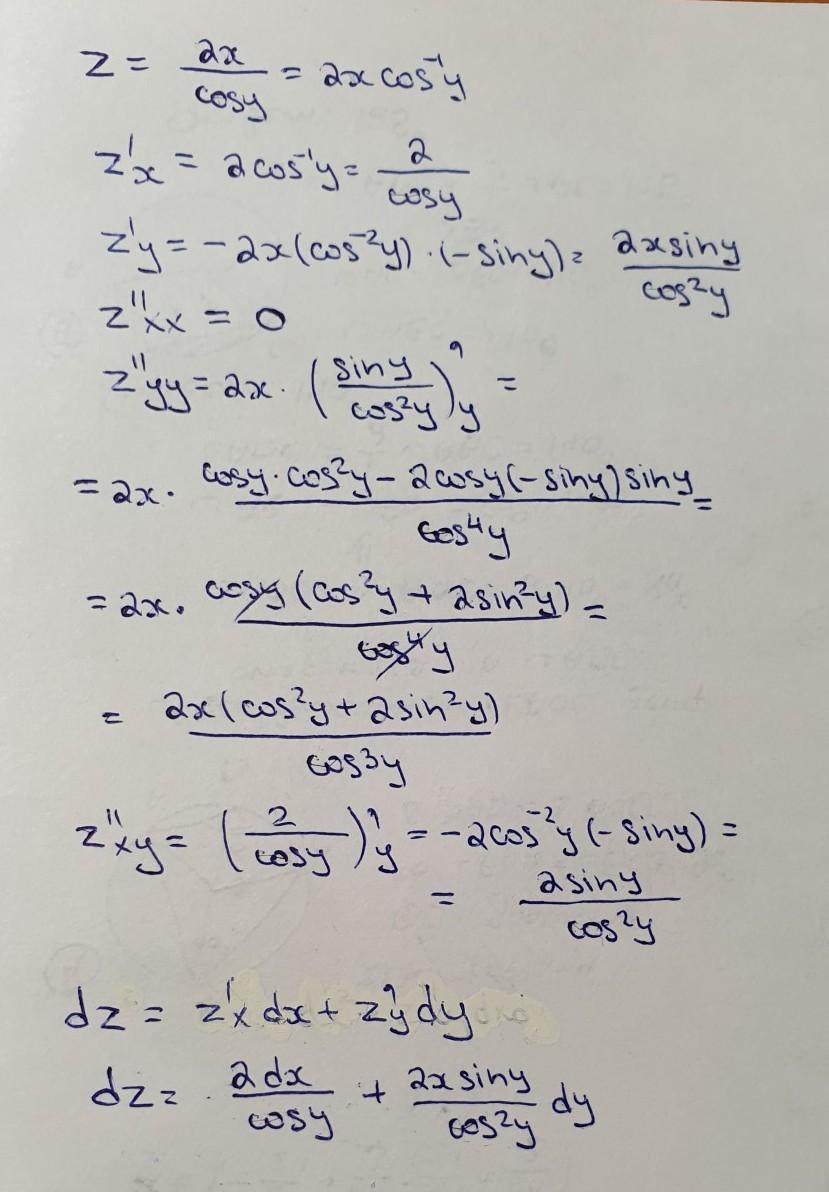 z = 2x/cosy = 2x cos⁻¹y
z'x = 2cos⁻¹y = 2/cosy
z'y = -2x(cos⁻²y)·(-siny) = 2xsiny/cos²y
z''xx = 0
z''yy = 2x·(siny/cos²y)'y =
= 2x· (cosy·cos²y - 2cosy(-siny)siny)/cos⁴y =
= 2x· cosy(cos²y + 2sin²y)/cos⁴y =
= 2x(cos²y + 2sin²y)/cos³y
z''xy = (2/cosy)'y = -2cos⁻²y(-siny) =
= 2siny/cos²y
dz = z'x dx + z'y dy
dz = 2dx/cosy + 2xsiny/cos²y dy